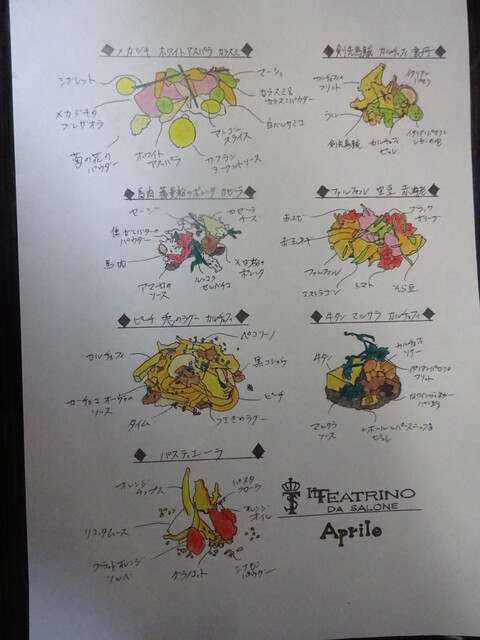 メカジキ ホワイトアスパラ カラスミ
シブレット
メカジキの
ブレザオラ
菊の花の
パウダー
ホワイト
アスパラ
サフラン
ヨーグルトソース
マンゴー
スライス
白バルサミコ
カラスミ&
カラスミパウダー
マーシュ
剣先烏賊 カルチョフィ 雲丹
カルチョフィの
フリット
イタリアン
パセリ
ウニ
剣先烏賊
カルチョフィ
ピュレ
イタリアンパセリと
レモンの皮
馬肉 蕎麦粉のポレンタ カゼーラ
セージ
焦がしバターの
パウダー
馬肉
アマーロの
ソース
ルッコラ
セルバチコ
そば粉の
ポレンタ
カゼーラ
チーズ
ファルファル 空豆 赤海老
赤エビ
赤玉ネギ
ファルファル
エストラゴン
トマト
そら豆
ブラック
オリーブ
ピーチ 兎のラグー カルチョフィ
カルチョフィ
カーチョエ オーヴァの
ソース
タイム
うさぎのラグー
ピーチ
黒コショウ
ペコリーノ
牛タン マルサラ カルチョフィ
牛タン
マルサラ
ソース
カルチョフィ
ソテー
イタリアンパセリの
フリット
パスティエーラ
オレンジ
チップス
リコッタムース
ブラッドオレンジ
ソルベ
クラノコット
シナモン
パウダー
オレンジ
オイル
パスタ
フローラ
IL TEATRINO
DA SALONE
Aprile